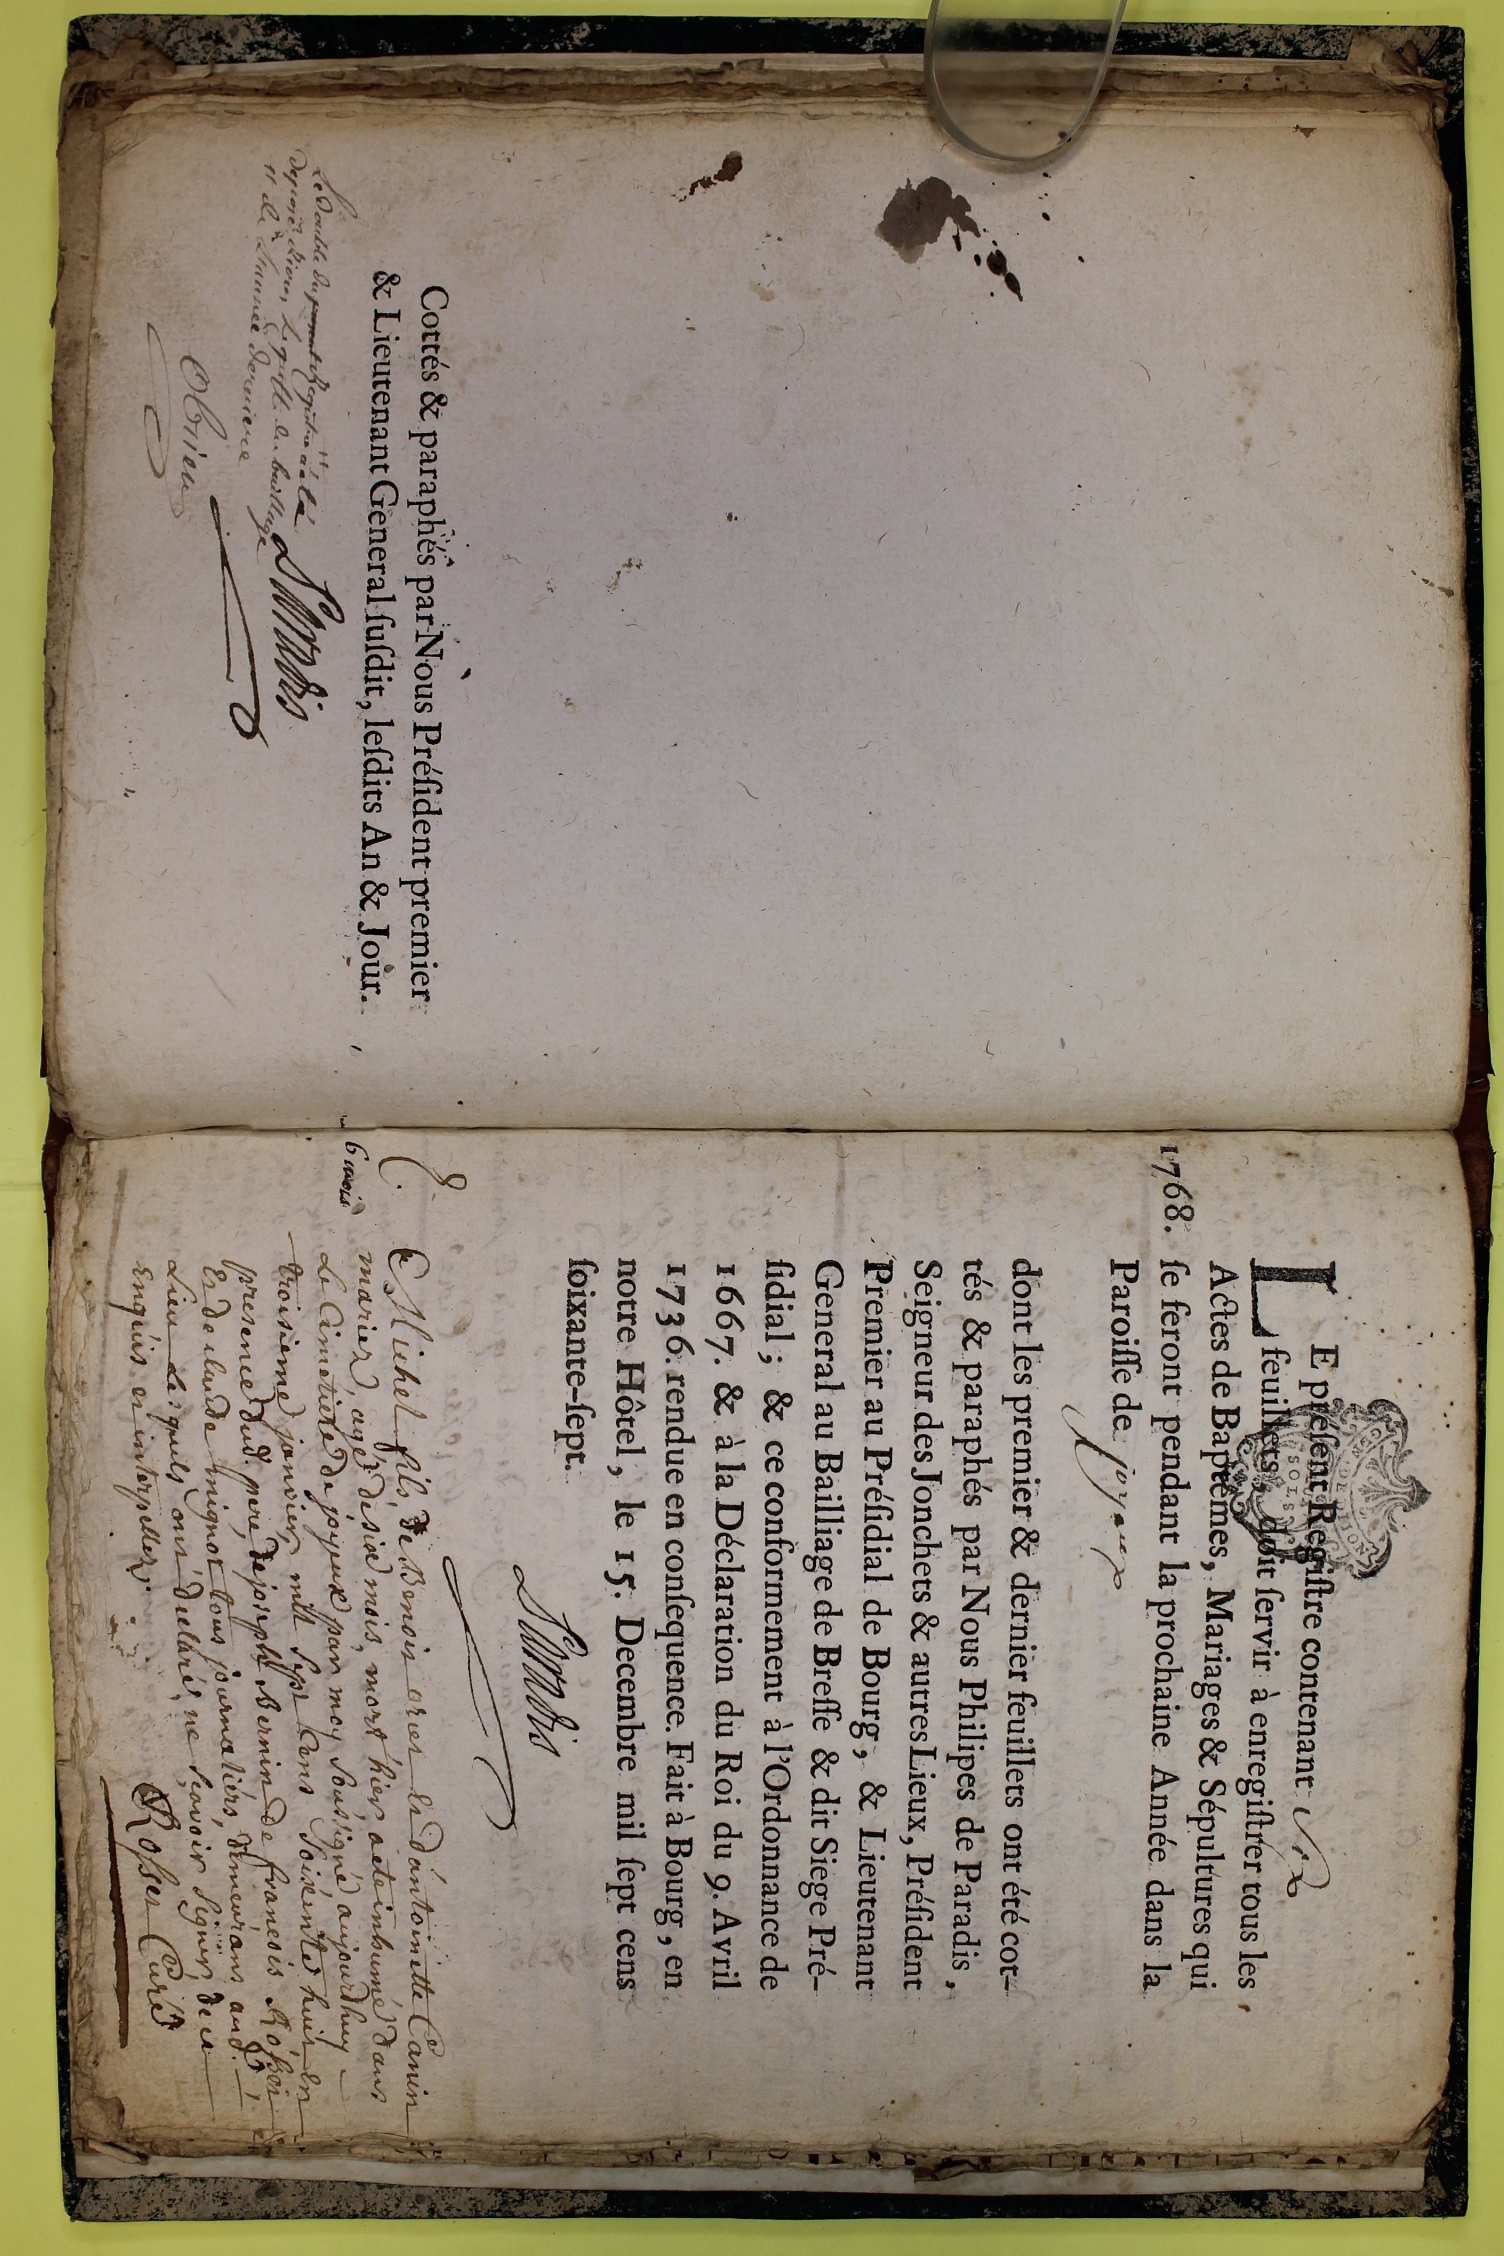 Cottés & paraphés par Nous Préſident premier
& Lieutenant General ſuſdit, leſdits An & Jour.
Le double du
deposé au greffe du bailliage
l'année derniere
LE préſent Regiſtre contenant six
feuillets, doit ſervir à enregiſtrer tous les
Actes de Baptêmes, Mariages & Sépultures qui
1768. ſe feront pendant la prochaine Année dans la
Paroiſſe de joyeux
dont les premier & dernier feuillets ont été cot-
tés & paraphés par Nous Philipes de Paradis,
Seigneur des Jonchets & autres Lieux, Préſident
Premier au Préſidial de Bourg, & Lieutenant
General au Bailliage de Breſſe & dit Siege Pré-
ſidial; & ce conformement à l'Ordonnance de
1667. & à la Déclaration du Roi du 9. Avril
1736. rendue en conſequence. Fait à Bourg, en
notre Hôtel, le 15. Decembre mil ſept cens
ſoixante-ſept.
6 mois
Michel fils de Benoit et d'antoinette Canin
mariez, agé de six mois, mort hier a eté inhumé dans
le Cimetiere de joyeux par moy soussigné aujourdhuy
troisieme janvier mill sept cens soixente huit en
presence dud. pere, de joseph Bernin de francois Rosset
et de claude mignot tous journaliers, demeurans aud.
Lieu lesquels ont declaré ne sçavoir signer de ce
enquis et interpellez.
Rosset Curé